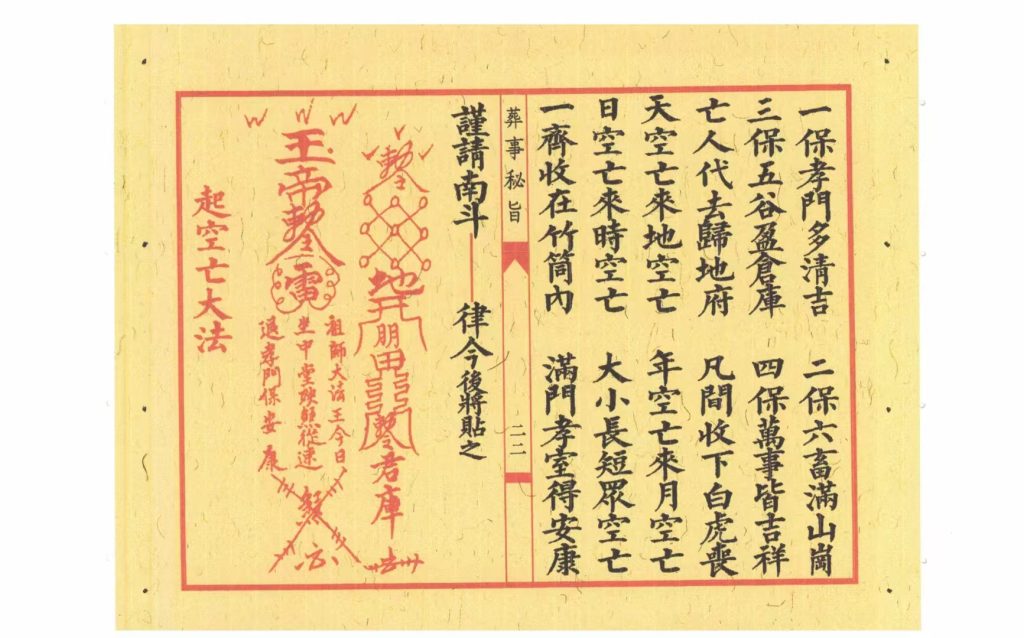 一保孝門多清吉　二保六畜滿山崗
三保五谷盈倉庫　四保萬事皆吉祥
亡人代去歸地府　凡間收下白虎喪
天空亡來地空亡　年空亡來月空亡
日空亡來時空亡　大小長短眾空亡
一齊收在竹筒內　滿門孝室得安康
葬事秘旨
二二
謹請南斗——律令後將貼之
勅令
地
井
朋
田
君庫
玉帝勅令
雷
祖師大法王今日
坐中堂
從速
退孝門保安康
起空亡大法